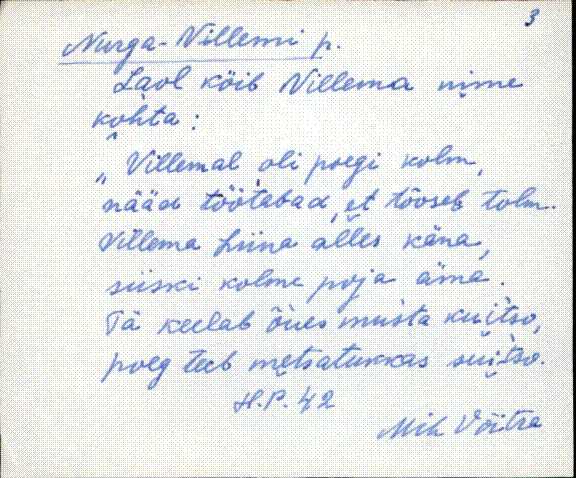 3
Nurga-Villemi p.
Laol köib Villema nime
kohta:
„Villemal oli poegi kolm,
nääd töötabad, et tõoseb tolm.
Villema Liina alles käna,
siiski kolme poja äma.
Tä keelab õues musta kuitso,
poeg teeb metsatukkas suitso.
H.P. 42
Mih Võitra